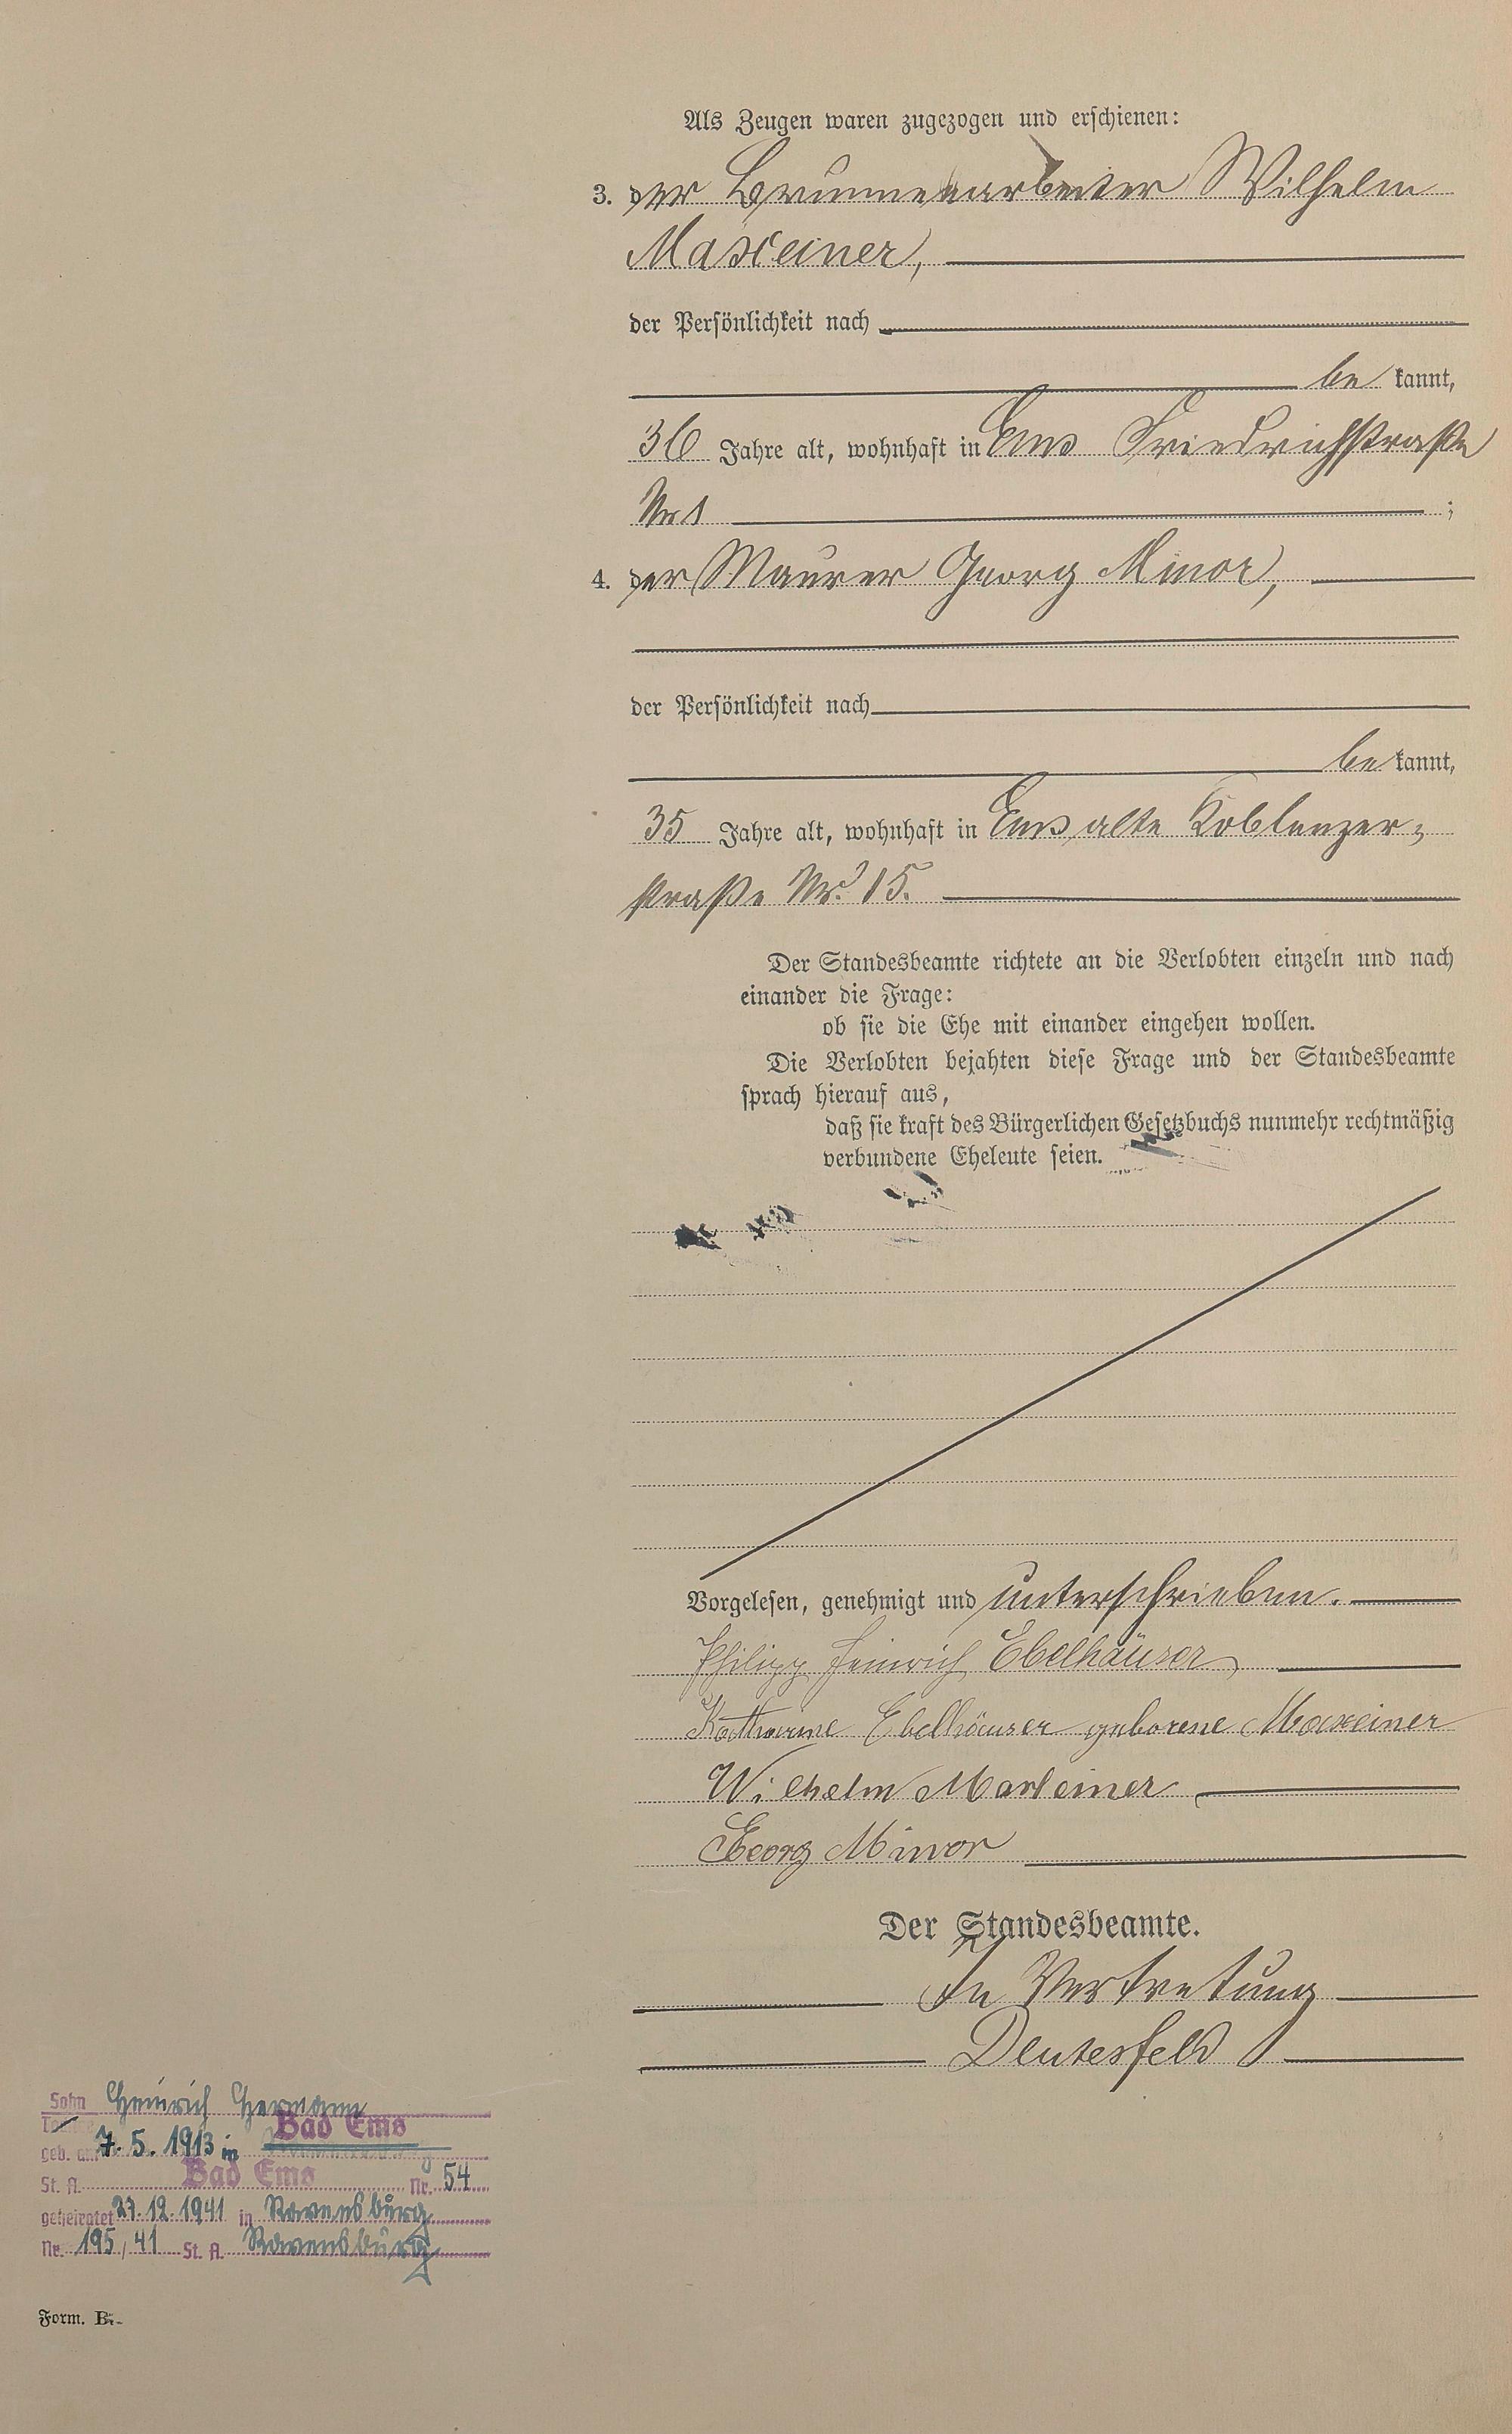 Als Zeugen waren zugezogen und erschienen:
3. der Brunnenarbeiter Wilhelm
Maxeiner,
der Persönlichkeit nach
be kannt,
36 Jahre alt, wohnhaft in Ems Friedrichstraße
Nr 1 ;
4. der Maurer Georg Minor,
der Persönlichkeit nach
be kannt,
35 Jahre alt, wohnhaft in Ems alte Koblenzer-
straße Nr. 15.
Der Standesbeamte richtete an die Verlobten einzeln und nach
einander die Frage:
ob sie die Ehe mit einander eingehen wollen.
Die Verlobten bejahten diese Frage und der Standesbeamte
sprach hierauf aus,
daß sie kraft des Bürgerlichen Gesetzbuchs nunmehr rechtmäßig
verbundene Eheleute seien.
Vorgelesen, genehmigt und unterschrieben.
Philipp Heinrich Ebelhäuser
Katharine Ebelhäuser geborene Maxeiner
Wilhelm Maxeiner
Georg Minor
Der Standesbeamte.
In Vertretung
Deutesfeld
Sohn Heinrich Hermann
geb. am 7. 5. 1913 in Bad Ems
St. A. Bad Ems Nr. 54
geheiratet 27. 12. 1941 in Ravensburg
Nr. 195/41 St. A. Ravensburg
Form. B.